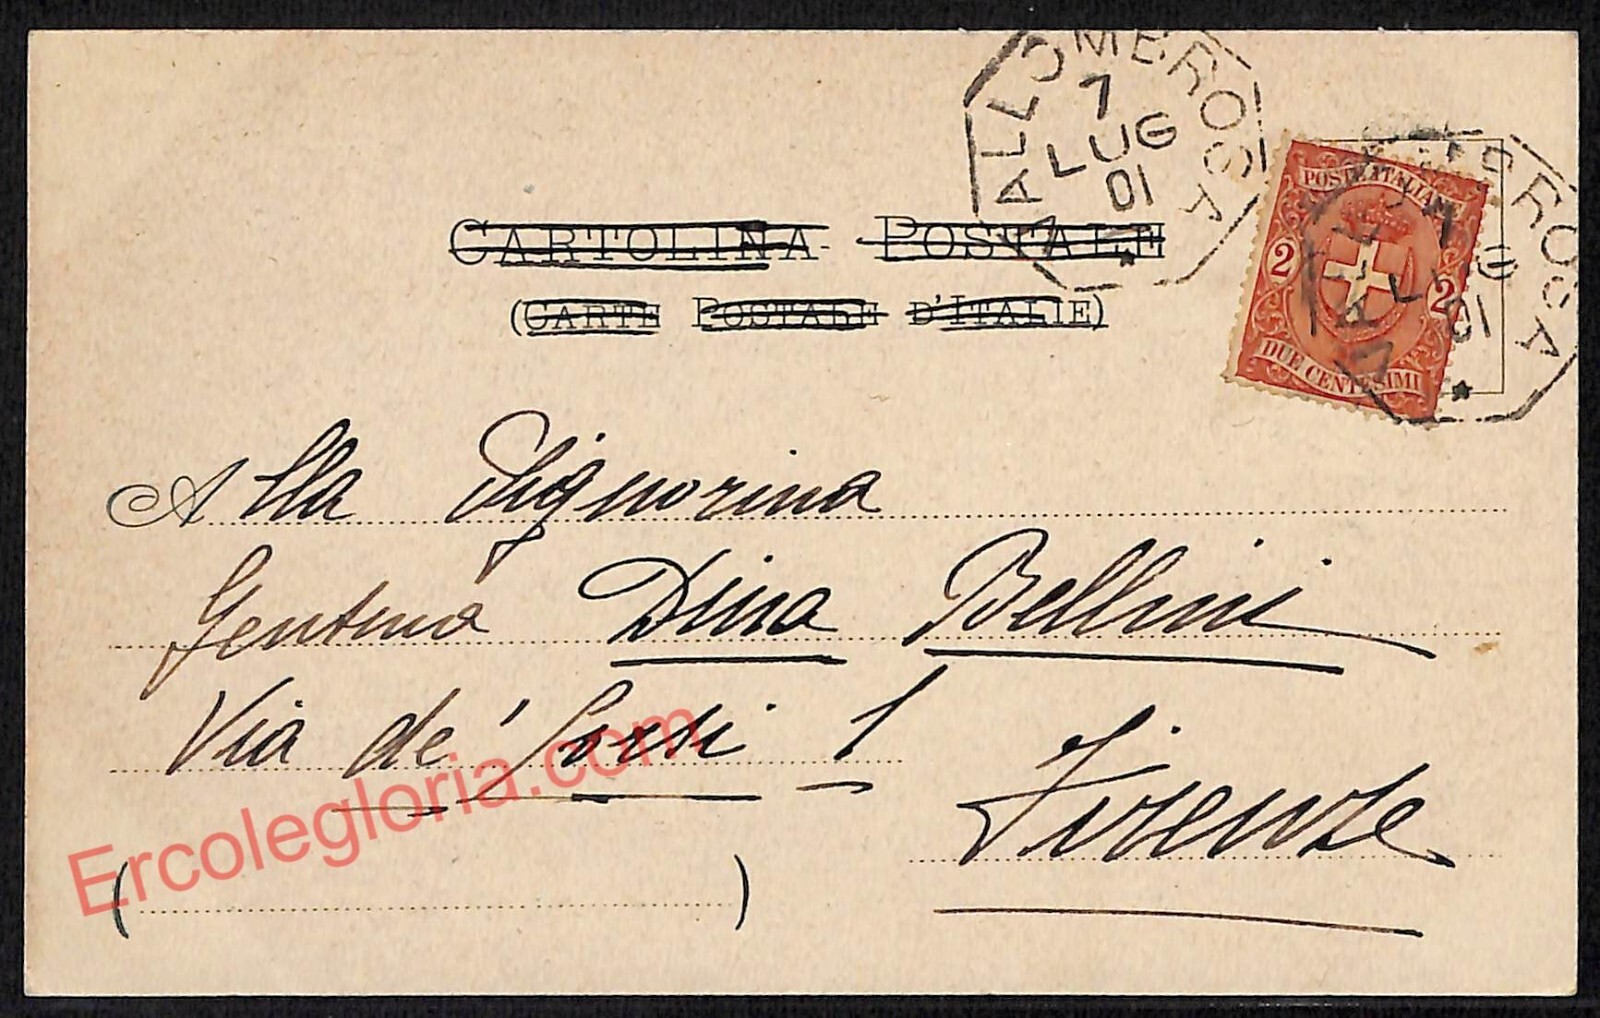 VALLOMBROSA
7
LUG
01
CARTOLINA POSTALE
(CARTE POSTALE D'ITALIE)
POSTE ITALIANE
2 2
DUE CENTESIMI
VALLOMBROSA
7
LUG
01
Alla Signorina
Gentma Dina Bellini
Via de' 1
Firenze
( )
Ercolegloria.com